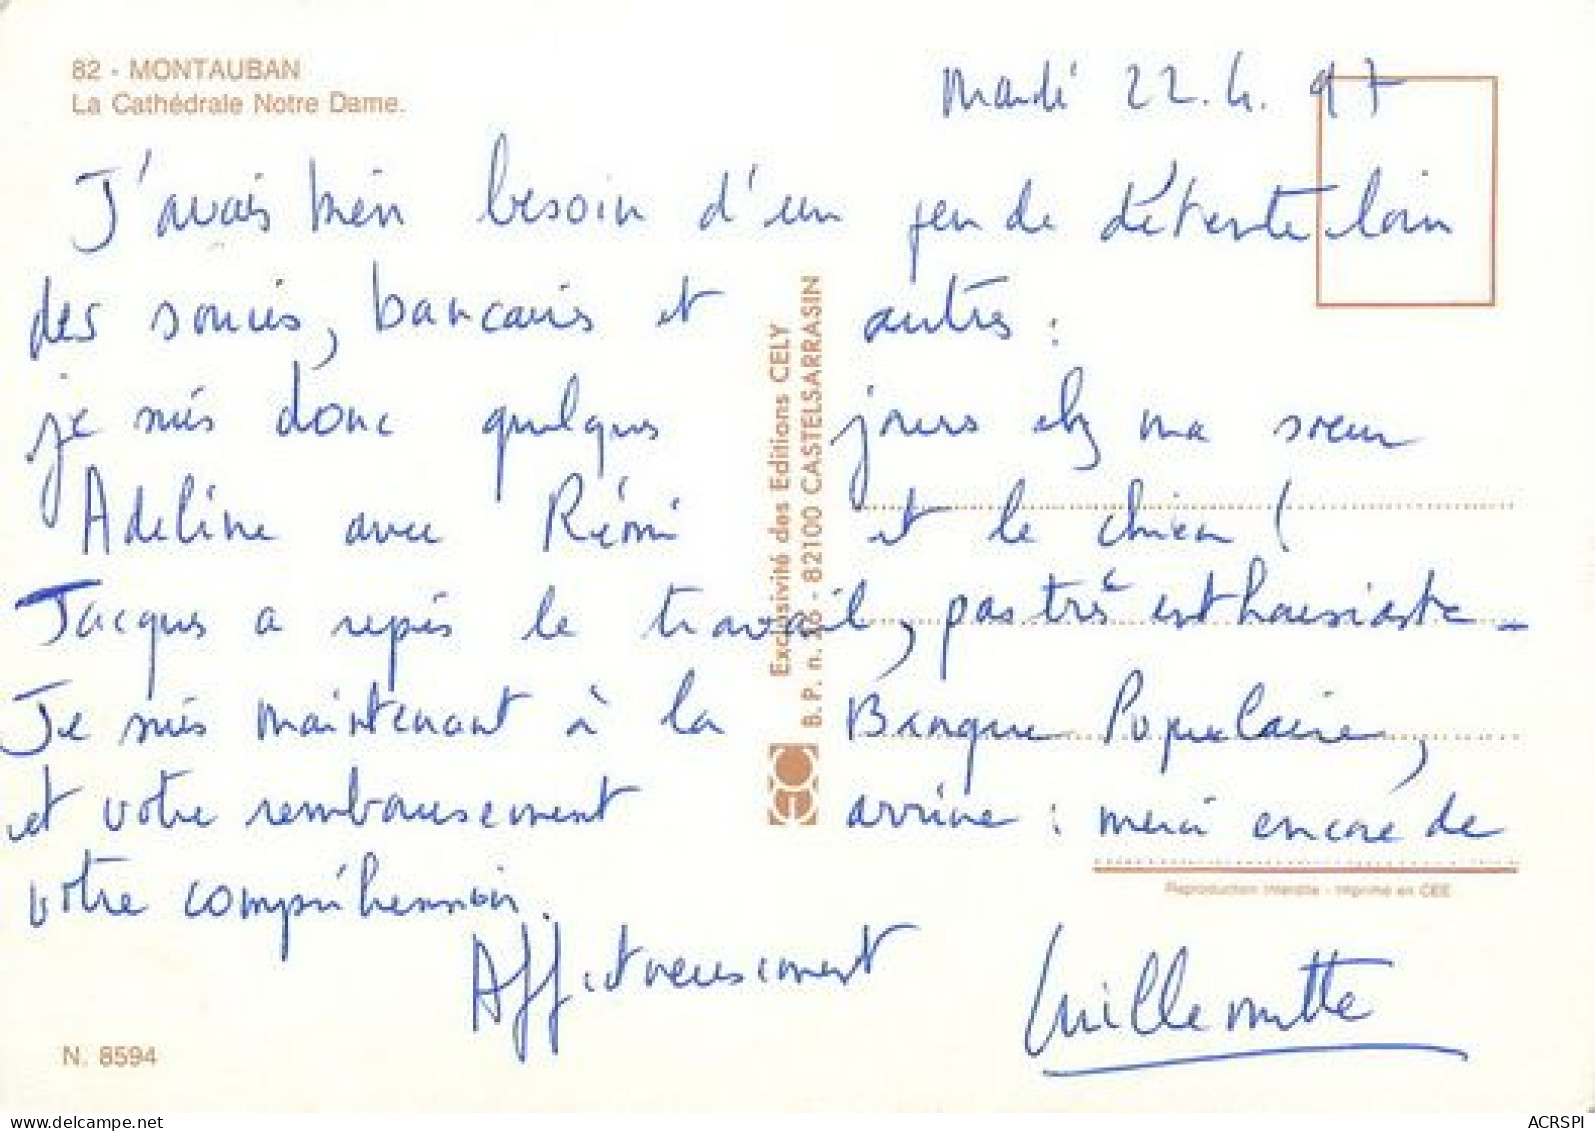 82 - MONTAUBAN
La Cathédrale Notre Dame.
Mardi 22.4.97
J'avais bien besoin d'un peu de détente loin
des soucis, bancaires et autres :
je suis donc quelques jours chez ma soeur
Adeline avec Rémi et le chien !
Jacques a repris le travail, pas très enthousiaste -
Je suis maintenant à la Banque Populaire,
et votre remboursement arrive : merci encore de
votre compréhension.
Affectueusement
Guillemette
Exclusivité des Editions CELY
B.P. n. 26 - 82100 CASTELSARRASIN
Reproduction interdite - Imprimé en CEE
N. 8594
ACRSPI